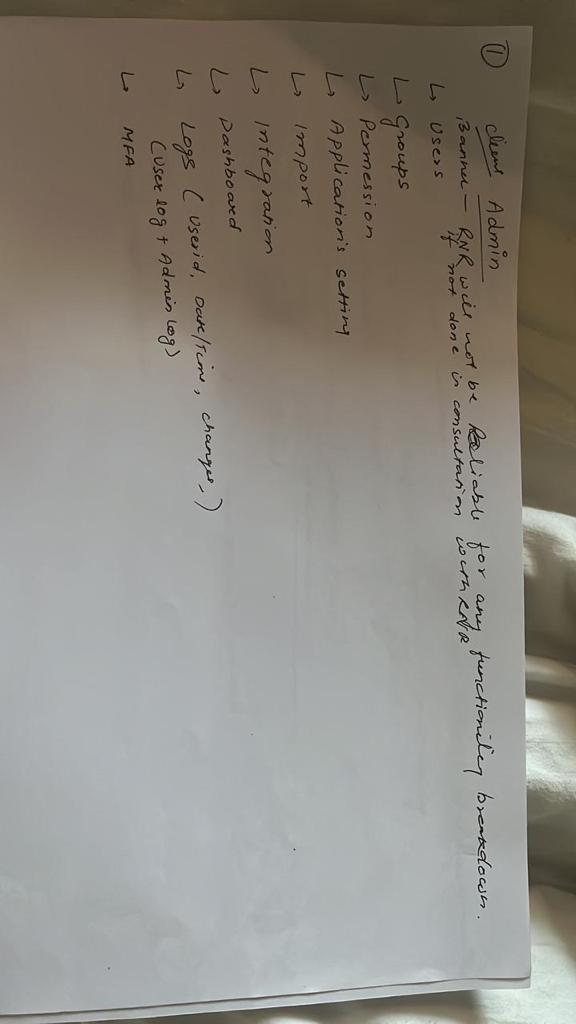 ① Client Admin
Banner - RNR will not be Reliable for any functionality breakdown.
if not done in consultation with RNR
↳ Users
↳ Groups
↳ Permession
↳ Application's setting
↳ Import
↳ Integration
↳ Dashboard
↳ Logs ( Userid, Date/Time, changes, )
(User log + Admin log)
↳ MFA